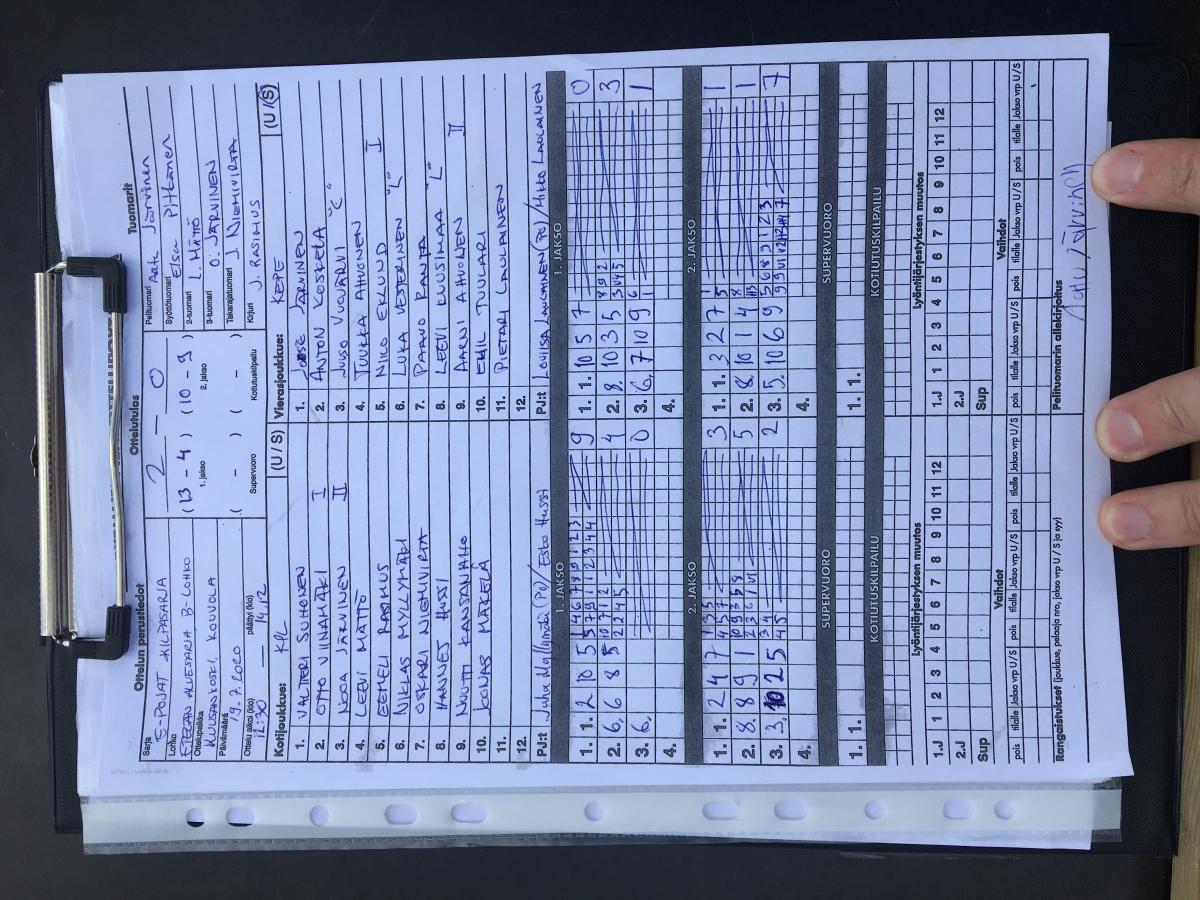 Ottelun perustiedot
Sarja
E-POJAT KILPASARJA
Lohko
ETELÄN ALUESARJA B-LOHKO
Ottelupaikka
KUUSANKOSKI, KOUVOLA
Päivämäärä
9.7.2020
Ottelu alkoi (klo) päättyi (klo)
12:30 14.12
Ottelutulos
2 - 0
( 13 - 4 ) ( 10 - 9 )
1. jakso 2. jakso
( - ) ( - )
Supervuoro Kotiutuskilpailu
Tuomarit
Pelituomari Aatu Järvinen
Syöttötuomari Elsa Pitkänen
2-tuomari L. MÄTTÖ
3-tuomari O. JÄRVINEN
Takarajatuomari J. NIEMIVIRTA
Kirjuri J. RASIMUS
Kotijoukkue: KPL (U / S)
1. VALTTERI SUHONEN
2. OTTO VIINAMÄKI I
3. NOOA JÄRVINEN II
4. LEEVI MÄTTÖ
5. EEMELI RASIMUS
6. NIKLAS MYLLYMÄKI
7. OSKARI NIEMIVIRTA
8. HANNES HUSSI
9. NUUTTI KANSANAHO
10. JOONAS MÄKELÄ
11.
12.
PJ:t Juha Myllymäki (PO) / Esko Hussi
Vierasjoukkue: KEPE (U / S)
1. JOOSE JÄRVINEN
2. ANTON KOSKELA "C"
3. JUSO VUOJÄRVI
4. TUUKKA AHVONEN
5. NICO EKLUND I
6. LUKA VESTERINEN "L"
7. PAAVO RANTA
8. LEEVI KUUSIMAA "L"
9. AARNI AHVONEN II
10. EMIL TUULARI
11. PIETARI LAULAINEN
12.
PJ:t (PO) / Mikko LAULAINEN
1. JAKSO
1. 1. 2 10 5 9
2. 6. 6 8 5 4
3. 6. 0
4.
1. JAKSO
1. 1. 10 5 7 0
2. 8. 10 3 5 3
3. 6. 7 10 9 1
4.
2. JAKSO
1. 1. 2 4 7 3
2. 8. 8 9 1 5
3. 3. 10 2 5 2
4.
2. JAKSO
1. 1. 3 2 7 1
2. 8. 10 1 4 1
3. 5. 10 6 9 7
4.
SUPERVUORO
1. 1.
SUPERVUORO
1. 1.
KOTIUTUSKILPAILU
KOTIUTUSKILPAILU
Lyöntijärjestyksen muutos
1.J 1 2 3 4 5 6 7 8 9 10 11 12
2.J
Sup
Lyöntijärjestyksen muutos
1.J 1 2 3 4 5 6 7 8 9 10 11 12
2.J
Sup
Vaihdot
pois tilalle Jakso vrp U/S pois tilalle Jakso vrp U/S pois tilalle Jakso vrp U/S
Vaihdot
pois tilalle Jakso vrp U/S pois tilalle Jakso vrp U/S pois tilalle Jakso vrp U/S
Rangaistukset (joukkue, pelaaja nro, jakso vrp, U / S ja syy)
Pelituomarin allekirjoitus
Aatu Järvinen